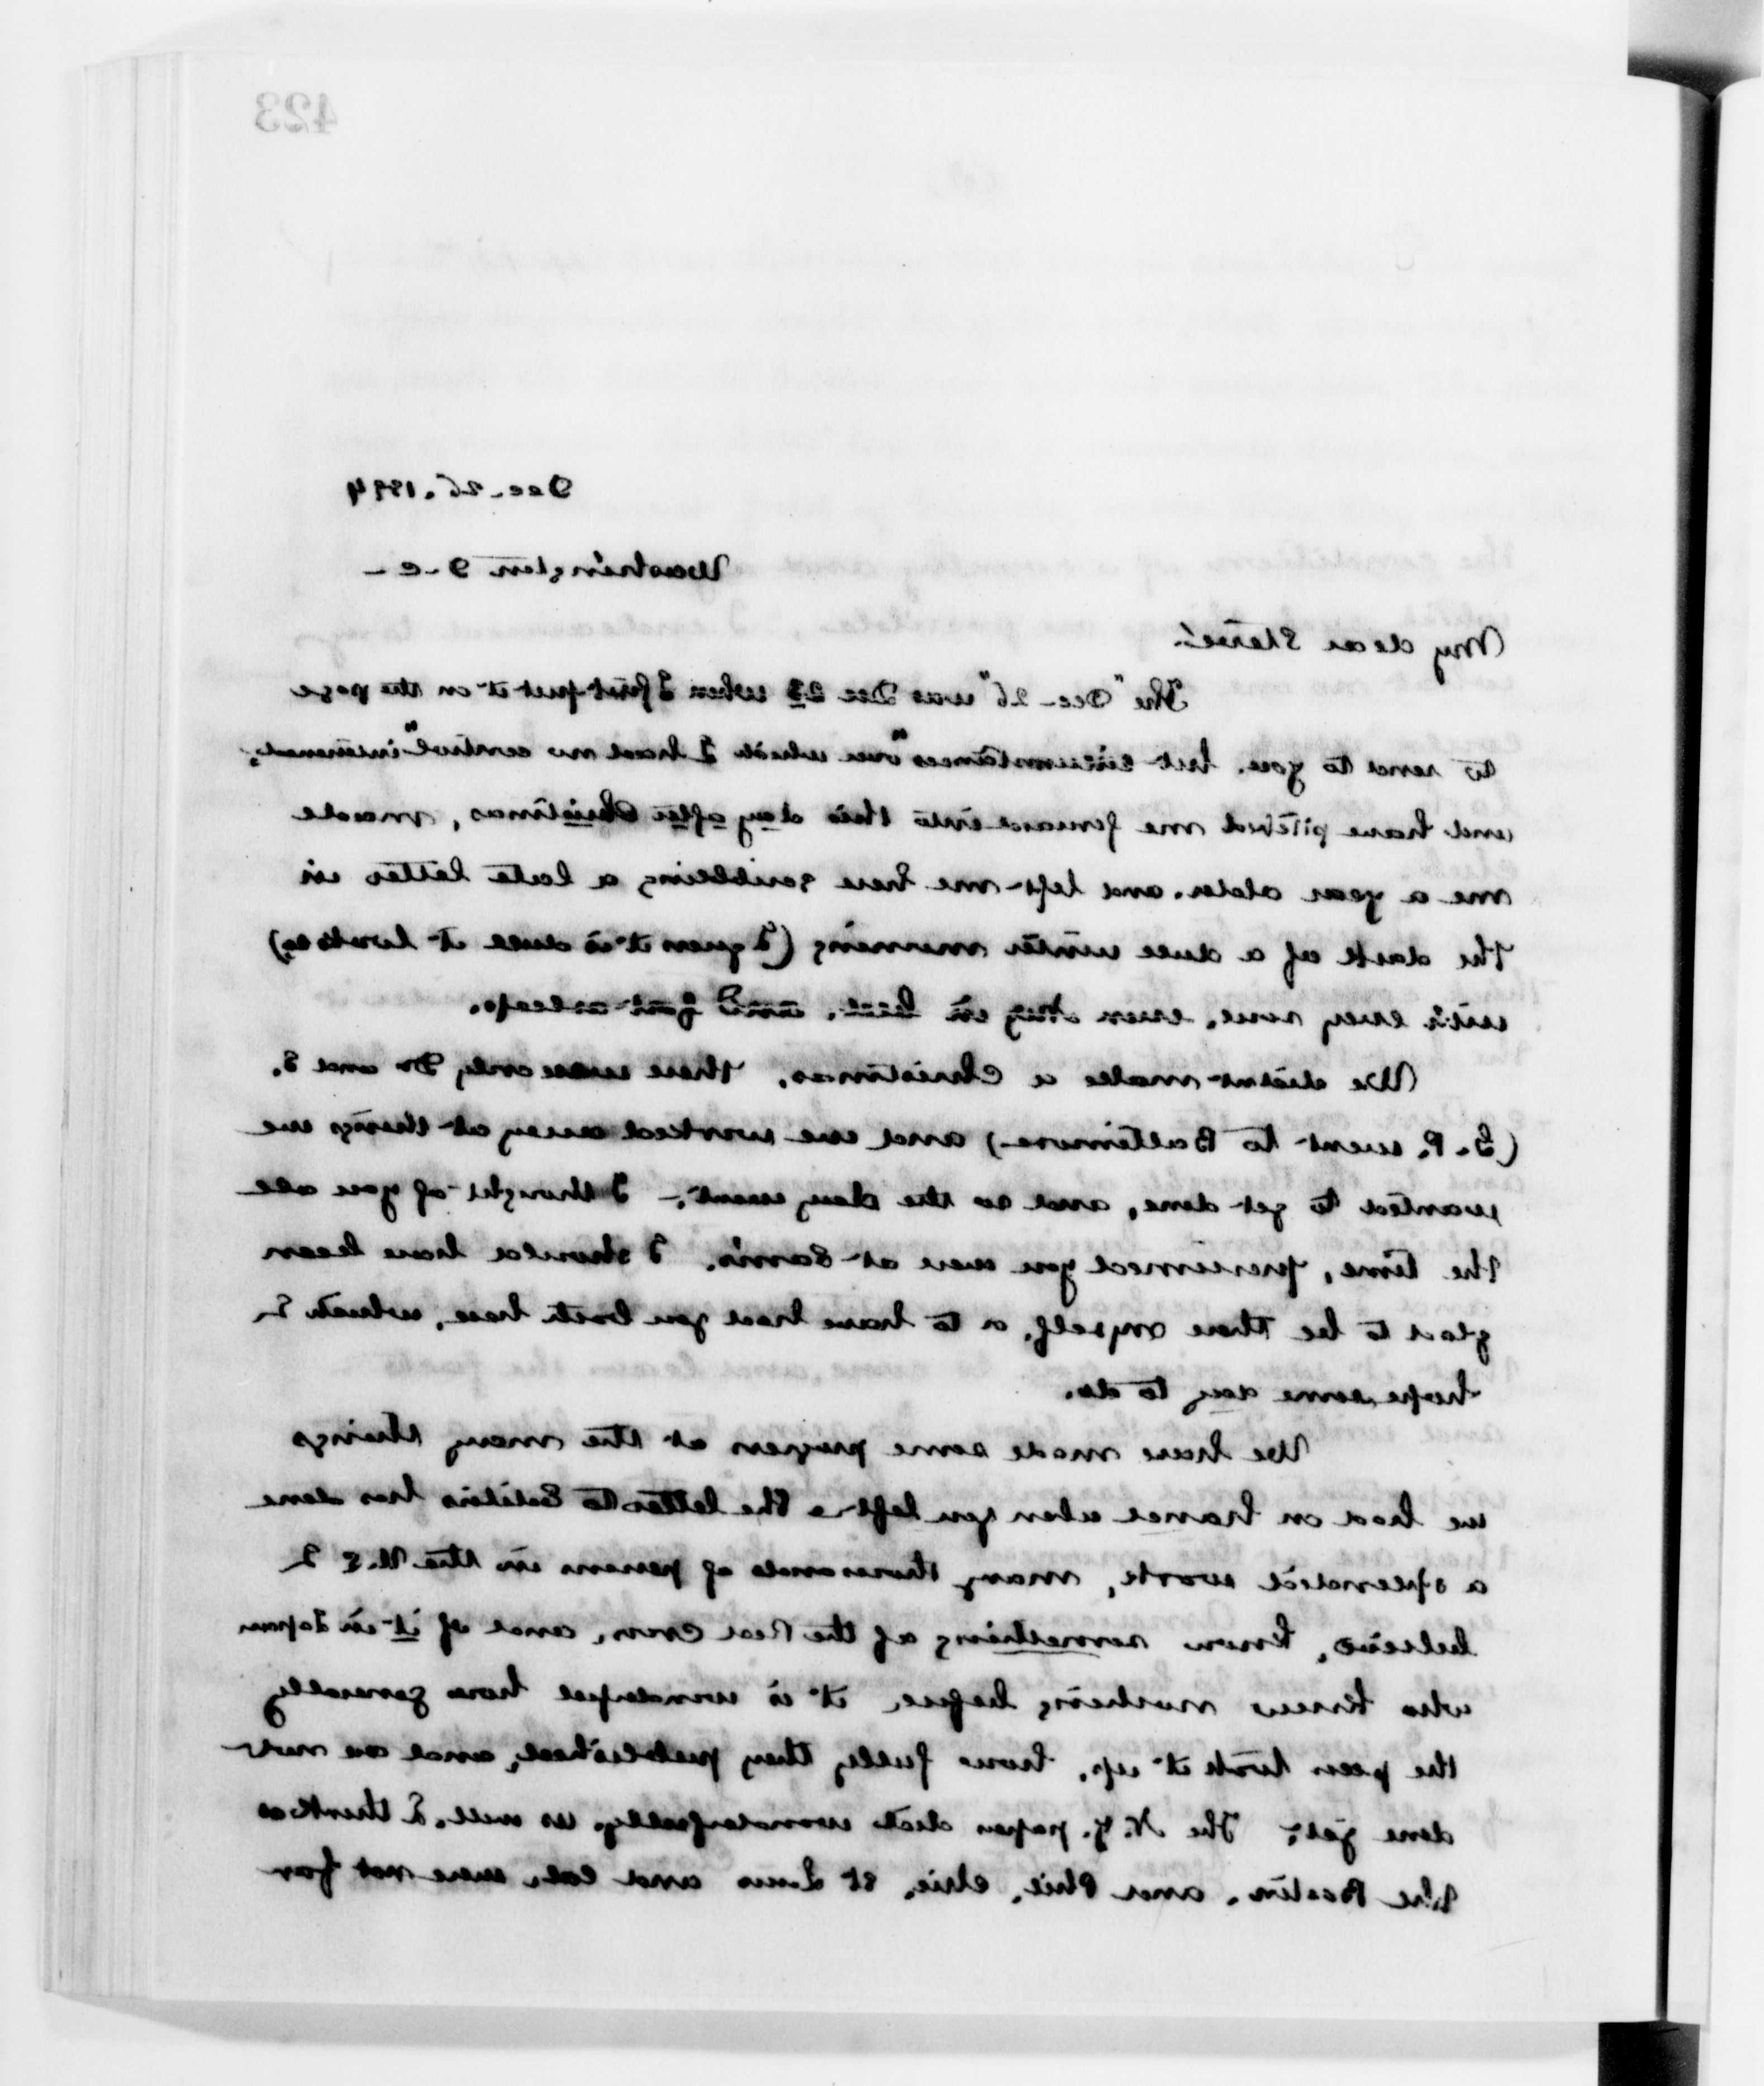 423
Dec. 26. 1894
Washington D.C.
My dear Steve!
The "Dec. 26" was Dec 23 when I first put it on the page
to send to you. but circumstances "over which I had no control" intervened,
and have pitched me forward into this day after Christmas, made
me a year older. and left me here scribbling a late letter in
the dark of a dull winter morning (I guess it is dull it looks so)
with every one, even in bed, and fast asleep.
We didnt make a Christmas. There were only Dr and I.
(G. P. went to Baltimore) and we worked away at things we
wanted to get done, and so the day went. I thought of you all
the time, presumed you were at Sam's. I should have been
glad to be there myself, or to have had you both here, which I
hope some day to do.
We have made some progress at the many things
we had on hand when you left. The letter to Editors has done
a splendid work, many thousands of persons in the U.S I
believe, know something of the Red Cross, and of it in Japan
who knew nothing before it is wonderful how generally
the press took it up. how fully they published, and are not
done yet. The N. Y. papers did wonderfully well. I think as
the Boston. and Phil. Chic. St Louis and were not far